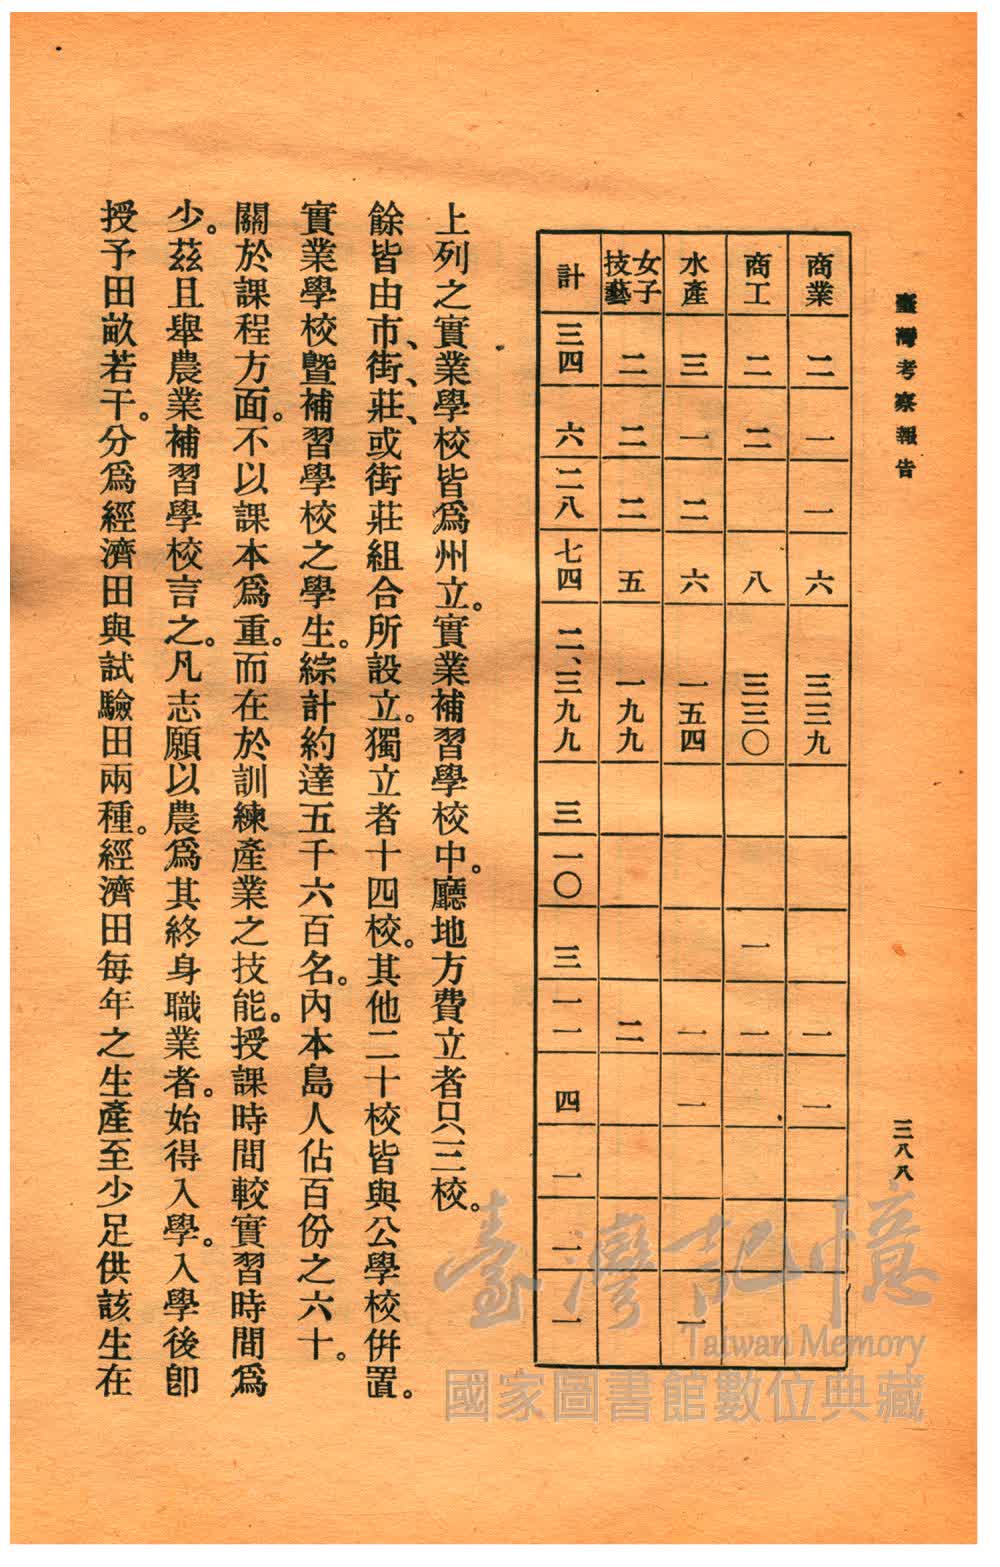 臺灣考察報告
三八八
商業 二 一 一 六 三三九 一 一
商工 二 二 八 三三〇 一 一
水產 三 一 二 六 一五四 一 一 一
女子技藝 二 二 二 五 一九九 二
計 三四 六 二八 七四 二、三九九 三 一〇 三 一一 四 一 一 一
上列之實業學校皆爲州立。實業補習學校中。廳地方費立者只三校。
餘皆由市、街、莊、或街莊組合所設立。獨立者十四校。其他二十校皆與公學校倂置。
實業學校曁補習學校之學生。綜計約達五千六百名。內本島人佔百份之六十。
關於課程方面。不以課本爲重。而在於訓練產業之技能。授課時間較實習時間爲
少。茲且舉農業補習學校言之。凡志願以農爲其終身職業者。始得入學。入學後卽
授予田畝若干。分爲經濟田與試驗田兩種。經濟田每年之生產至少足供該生在
臺灣記憶
Taiwan Memory
國家圖書館數位典藏